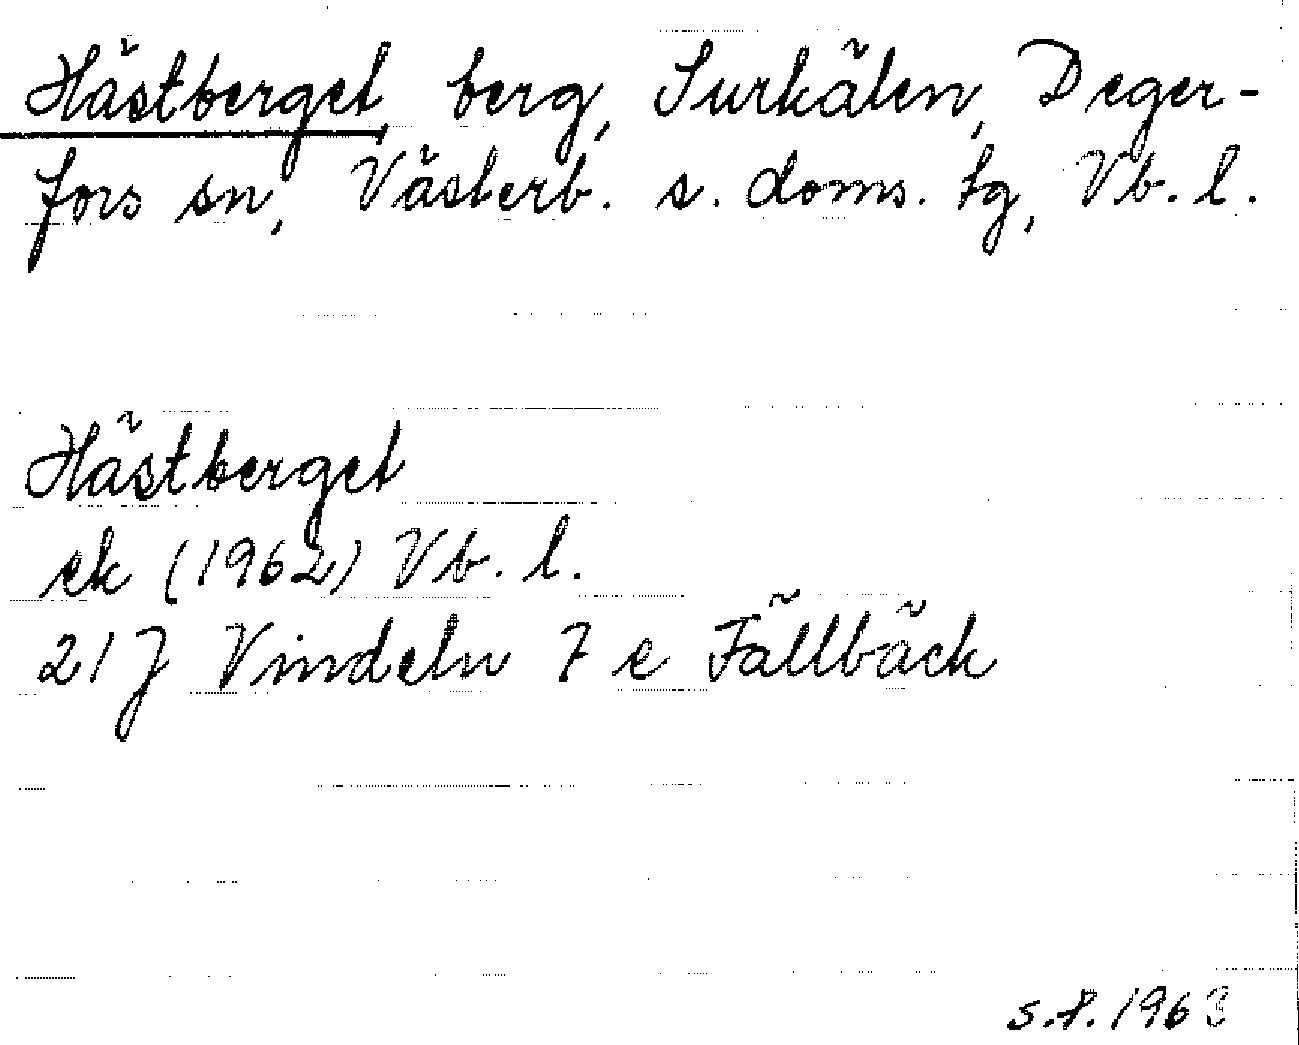 Hästberget, berg, Surkälen, Deger-
fors sn, Västerb. s. doms. tg, Vb. l.
Hästberget
ek (1962) Vb. l.
21 J Vindeln 7 e Fällbäck
s.f. 1963